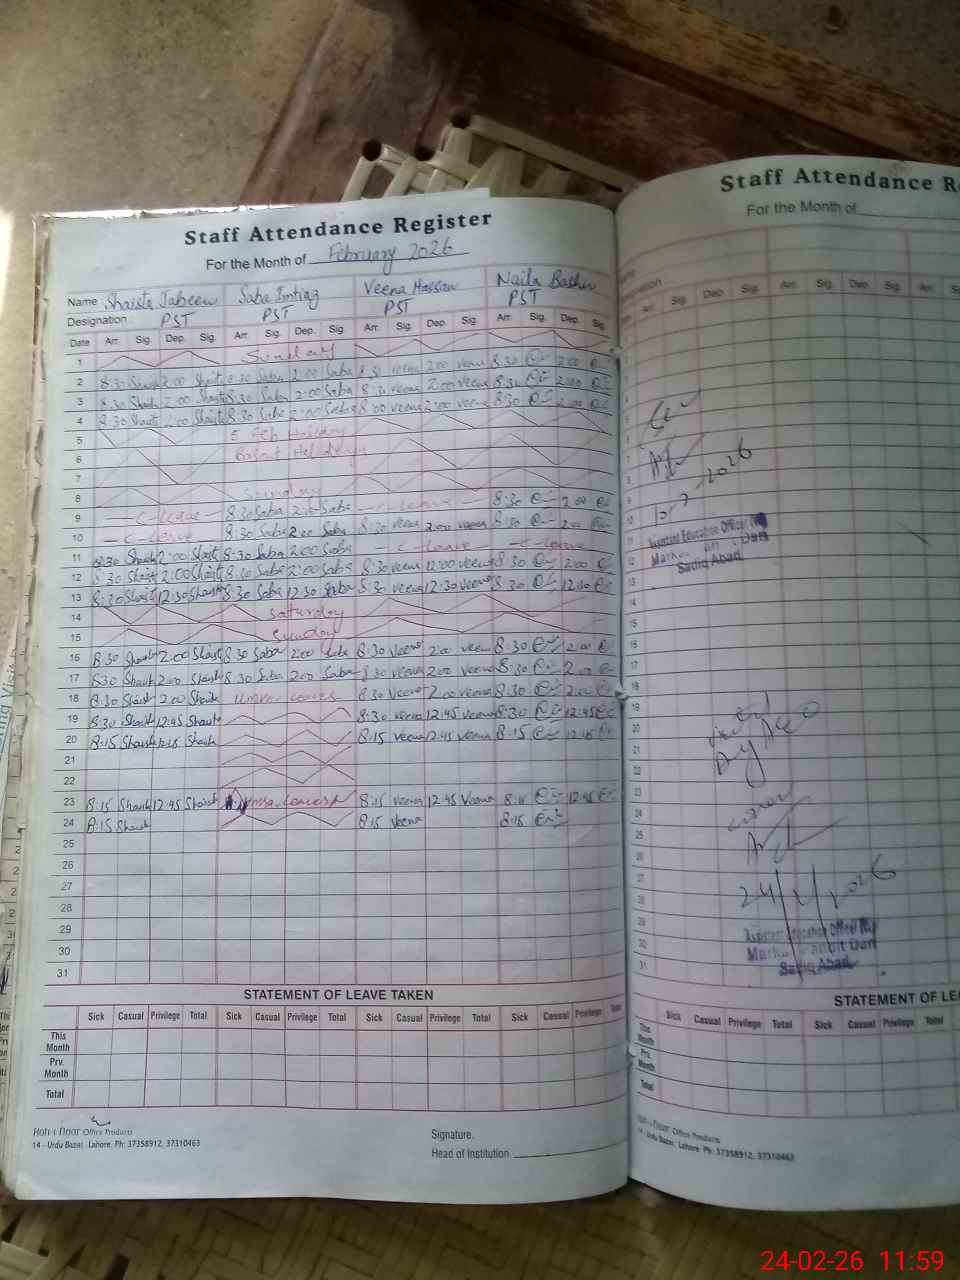 Staff Attendance Register
For the Month of February 2026
Name: Shaista Jabeen Saba Imtiaz Veena Hassan Naila Bashir
Designation: PST PST PST PST
Date Arr. Sig. Dep. Sig. Arr. Sig. Dep. Sig. Arr. Sig. Dep. Sig. Arr. Sig. Dep. Sig.
1 Sunday
2 8:30 Shaist 2:00 Shaist 8:30 Saba 2:00 Saba 8:30 veena 2:00 veena 8:30 2:00
3 8:30 Shaist 2:00 Shaist 8:30 Saba 2:00 Saba 8:30 veena 2:00 veena 8:30 2:00
4 8:30 Shaist 2:00 Shaist 8:30 Saba 2:00 Saba 8:00 veena 2:00 veena 8:30 2:00
5 5 Feb Holiday
6 Basnt Holidays
7
8 Sunday
9 C-Leave 8:30 Saba 2:00 Saba C-Leave 8:30 2:00
10 C-Leave 8:30 Saba 2:00 Saba 8:30 veena 2:00 veena 8:30 2:00
11 8:30 Shaist 2:00 Shaist 8:30 Saba 2:00 Saba C-Leave C-Leave
12 8:30 Shaist 2:00 Shaist 8:30 Saba 2:00 Saba 8:30 veena 12:00 veena 8:30 2:00
13 8:30 Shaist 12:30 Shaist 8:30 Saba 12:30 Saba 8:30 veena 12:30 veena 8:30 12:30
14 Saturday
15 Sunday
16 8:30 Shaist 2:00 Shaist 8:30 Saba 2:00 Saba 8:30 Veena 2:00 veena 8:30 2:00
17 8:30 Shaist 2:00 Shaist 8:30 Saba 2:00 Saba 8:30 veena 2:00 Veena 8:30 2:00
18 8:30 Shaist 2:00 Shaist leaves 8:30 Veena 2:00 veena 8:30 2:00
19 8:30 Shaist 12:45 Shaist 8:30 veena 12:45 veena 8:30 12:45
20 8:15 Shaist 12:45 Shaist 8:15 veena 12:45 Veena 8:15 12:45
21
22
23 8:15 Shaist 12:45 Shaist leaves 8:15 veena 12:45 Veena 8:15 12:45
24 8:15 Shaist 8:15 Veena 8:15
25
26
27
28
29
30
31
STATEMENT OF LEAVE TAKEN
Sick Casual Privilege Total Sick Casual Privilege Total Sick Casual Privilege Total Sick Casual Privilege Total
This Month
Prv. Month
Total
Koh-i-Noor Office Products
14 - Urdu Bazar, Lahore. Ph: 37358912, 37310463
Signature.
Head of Institution
Staff Attendance R
For the Month of
Arr. Sig. Dep. Sig. Arr. Sig. Dep. Sig. Arr.
2026
Assistant Education Officer
Sadiq Abad
24/2/2026
Assistant Education Officer
Sadiq Abad
STATEMENT OF LE
Sick Casual Privilege Total Sick Casual Privilege Total
This Month
Prv. Month
Total
Koh-i-Noor Office Products
14 - Urdu Bazar, Lahore. Ph: 37358912, 37310463
24-02-26 11:59